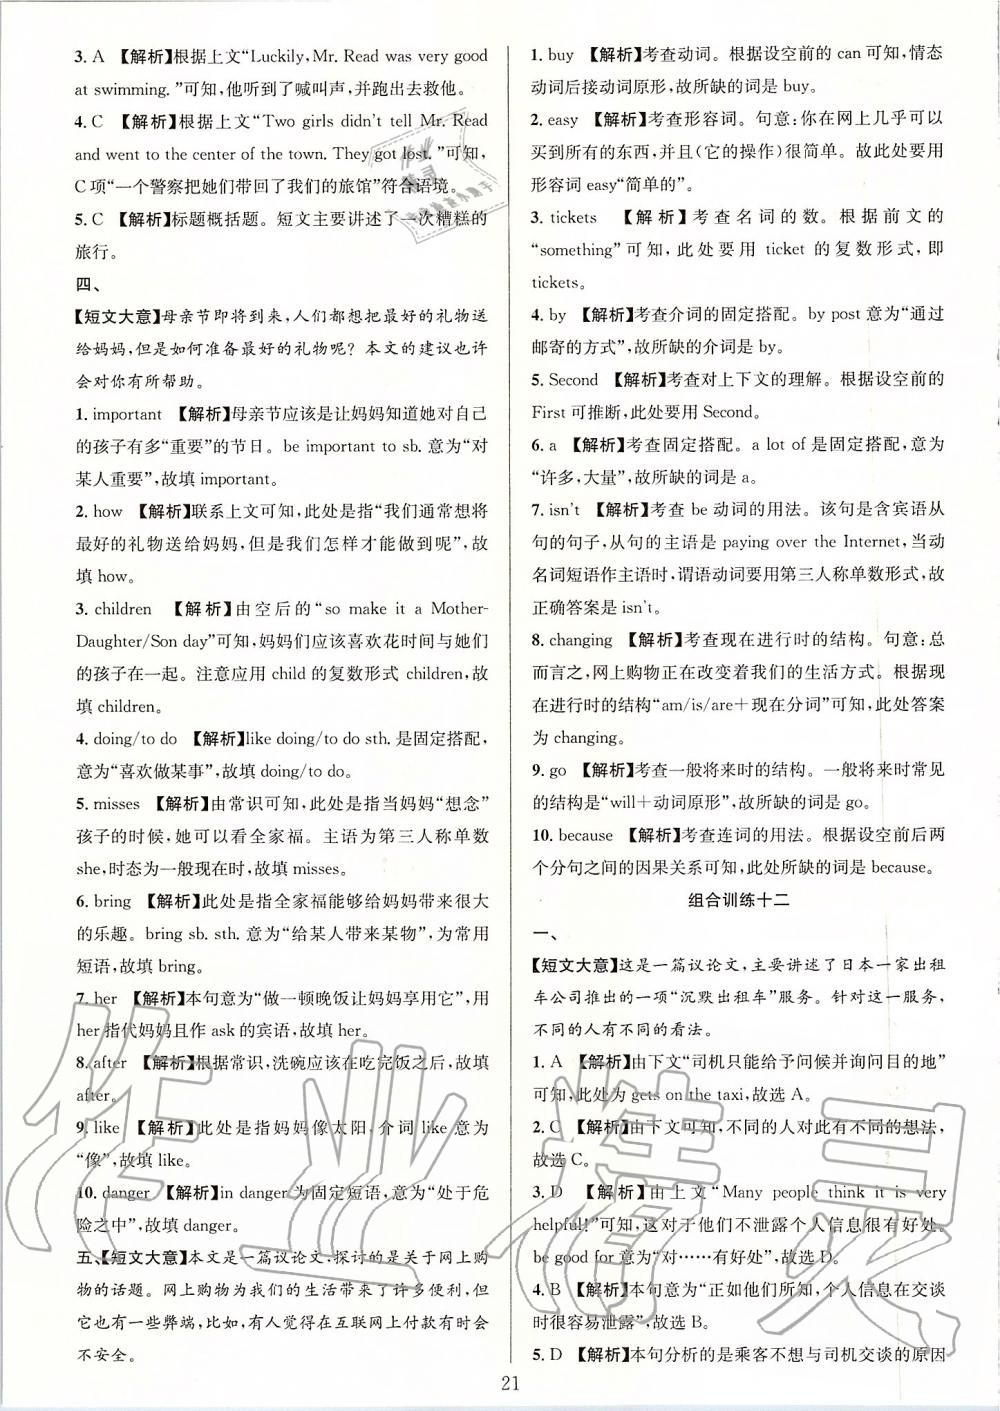 3. A 【解析】根据上文“Luckily, Mr. Read was very good
at swimming.”可知,他听到了喊叫声,并跑出去救他。
4. C 【解析】根据上文“Two girls didn't tell Mr. Read
and went to the center of the town. They got lost.”可知,
C项“一个警察把她们带回了我们的旅馆”符合语境。
5. C 【解析】标题概括题。短文主要讲述了一次糟糕的
旅行。
四、
【短文大意】母亲节即将到来,人们都想把最好的礼物送
给妈妈,但是如何准备最好的礼物呢? 本文的建议也许
会对你有所帮助。
1. important 【解析】母亲节应该是让妈妈知道她对自己
的孩子有多“重要”的节日。be important to sb. 意为“对
某人重要”,故填 important。
2. how 【解析】联系上文可知,此处是“我们通常想将
最好的礼物送给妈妈,但是我们怎样才能做到呢”,故
填 how。
3. children 【解析】由空后的“so make it a Mother-
Daughter/Son day”可知,妈妈们应该喜欢花时间与她们
的孩子在一起。注意应用 child 的复数形式 children,故
填 children。
4. doing/to do 【解析】like doing/to do sth. 是固定搭配,
意为“喜欢做某事”,故填 doing/to do。
5. misses 【解析】由常识可知,此处是指当妈妈“想念”
孩子的时候,她可以看全家福。主语为第三人称单数
she,时态为一般现在时,故填 misses。
6. bring 【解析】此处是指全家福能够给妈妈带来很大
的乐趣。bring sb. sth. 意为“给某人带来某物”,为常用
短语,故填 bring。
7. her 【解析】本句意为“做一顿晚饭让妈妈享用它”,用
her 指代妈妈且作 ask 的宾语,故填 her。
8. after 【解析】根据常识,洗碗应该在吃完饭之后,故填
after。
9. like 【解析】此处是指妈妈像太阳,介词 like 意为
“像”,故填 like。
10. danger 【解析】in danger 为固定短语,意为“处于危
险之中”,故填 danger。
五、【短文大意】本文是一篇议论文,探讨的是关于网上购
物的话题。网上购物为我们的生活带来了许多便利,但
它也有一些弊端,比如,有人觉得在互联网上付款有时会
不安全。
1. buy 【解析】考查动词。根据设空前的 can 可知,情态
动词后接动词原形,故所缺的词是 buy。
2. easy 【解析】考查形容词。句意:你在网上几乎可以
买到所有的东西,并且(它的操作)很简单。故此处要用
形容词 easy“简单的”。
3. tickets 【解析】考查名词的数。根据前文的
“something”可知,此处要用 ticket 的复数形式,即
tickets。
4. by 【解析】考查介词的固定搭配。by post 意为“通过
邮寄的方式”,故所缺的介词是 by。
5. Second 【解析】考查对上下文的理解。根据设空前的
First 可推断,此处要用 Second。
6. a 【解析】考查固定搭配。a lot of 是固定搭配,意为
“许多,大量”,故所缺的词是 a。
7. isn't 【解析】考查 be 动词的用法。该句是含宾语从
句的句子,从句的主语是 paying over the Internet,当动
名词短语作主语时,谓语动词要用第三人称单数形式,故
正确答案是 isn't。
8. changing 【解析】考查现在进行时的结构。句意:总
而言之,网上购物正在改变着我们的生活方式。根据现
在进行时的结构“am/is/are+现在分词”可知,此处答案
为 changing。
9. go 【解析】考查一般将来时的结构。一般将来时常见
的结构是“will+动词原形”,故所缺的词是 go。
10. because 【解析】考查连词的用法。根据设空前后两
个分句之间的因果关系可知,此处所缺的词是 because。
组合训练十二
一、
【短文大意】这是一篇议论文,主要讲述了日本一家出租
车公司推出的一项“沉默出租车”服务。针对这一服务,
不同的人有不同的看法。
1. A 【解析】由下文“司机只能给予问候并询问目的地”
可知,此处为 gets on the taxi,故选 A。
2. C 【解析】由下文可知,不同的人对此有不同的想法,
故选 C。
3. D 【解析】由上文“Many people think it is very
helpful!”可知,这对于他们不泄露个人信息很有好处。
be good for 意为“对……有好处”,故选 D。
4. B 【解析】本句意为“正如他们所知,个人信息在交谈
时很容易泄露”,故选 B。
5. D 【解析】本句分析的是乘客不想与司机交谈的原因
21
作业精灵